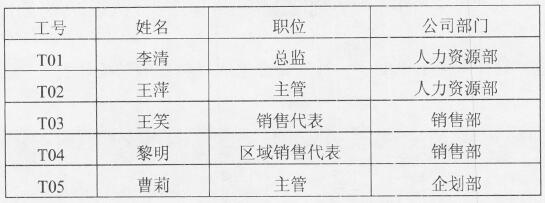 工号 姓名 职位 公司部门
T01 李清 总监 人力资源部
T02 王萍 主管 人力资源部
T03 王笑 销售代表 销售部
T04 黎明 区域销售代表 销售部
T05 曹莉 主管 企划部